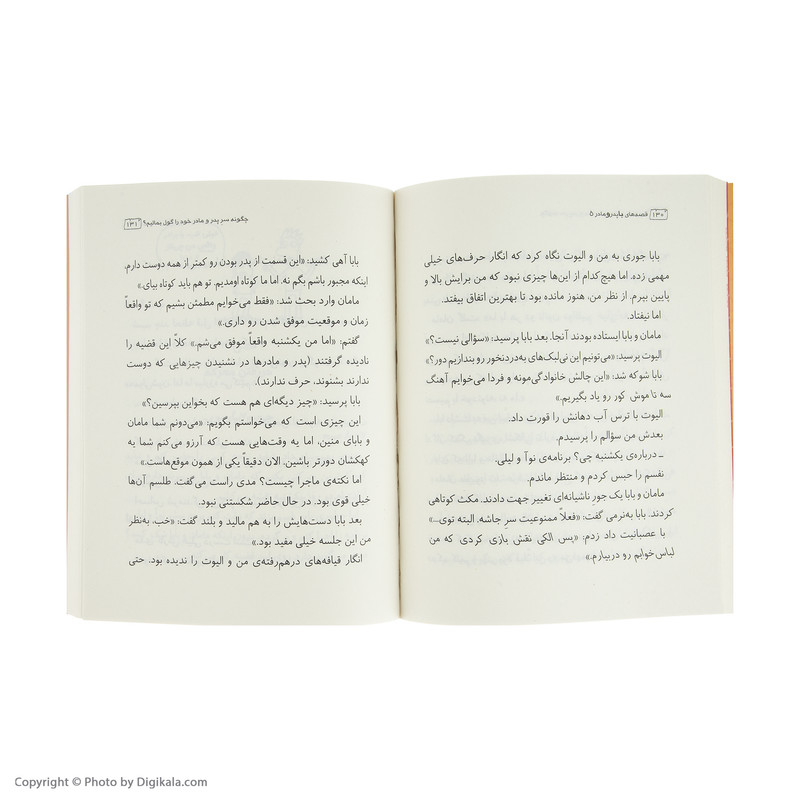 ۱۳۰ قصه‌های بابدرومادر ۵
بابا جوری به من و الیوت نگاه کرد که انگار حرف‌های خیلی
مهمی زده. اما هیچ‌کدام از این‌ها چیزی نبود که من برایش بالا و
پایین بپرم. از نظر من، هنوز مانده بود تا بهترین اتفاق بیفتد.
اما نیفتاد.
مامان و بابا ایستاده بودند آنجا. بعد بابا پرسید: «سؤالی نیست؟»
الیوت پرسید: «می‌تونیم این نی‌لبک‌های به‌دردنخور رو بندازیم دور؟»
بابا شوکه شد: «این چالش خانوادگی‌مونه و فردا می‌خوایم آهنگ
سه تا موش کور رو یاد بگیریم.»
الیوت با ترس آب دهانش را قورت داد.
بعدش من سؤالم را پرسیدم.
ـ درباره‌ی یکشنبه چی؟ برنامه‌ی نوآ و لیلی.
نفسم را حبس کردم و منتظر ماندم.
مامان و بابا یک جورِ ناشیانه‌ای تغییر جهت دادند. مکث کوتاهی
کردند. بابا به‌نرمی گفت: «فعلاً ممنوعیت سرِ جاشه. البته توی...»
با عصبانیت داد زدم: «پس الکی نقش بازی کردی که من
لباس خوابم رو دربیارم.»
چگونه سرِ پدر و مادر خود را گول بمالیم؟ ۱۳۱
بابا آهی کشید: «این قسمت از پدر بودن رو کمتر از همه دوست دارم،
اینکه مجبور باشم بگم نه. اما ما کوتاه اومدیم. تو هم باید کوتاه بیای.»
مامان وارد بحث شد: «فقط می‌خوایم مطمئن بشیم که تو واقعاً
زمان و موقعیت موفق شدن رو داری.»
گفتم: «اما من یکشنبه واقعاً موفق می‌شم.» کلاً این قضیه را
نادیده گرفتند (پدر و مادرها در نشنیدن چیزهایی که دوست
ندارند بشنوند، حرف ندارند).
بابا پرسید: «چیز دیگه‌ای هم هست که بخواین بپرسین؟»
این چیزی است که می‌خواستم بگویم: «می‌دونم شما مامان
و بابای منین، اما یه وقت‌هایی هست که آرزو می‌کنم شما یه
کهکشان دورتر باشین. الان دقیقاً یکی از همون موقع‌هاست.»
اما نکته‌ی ماجرا چیست؟ مدی راست می‌گفت. طلسم آن‌ها
خیلی قوی بود. در حال حاضر شکستنی نبود.
بعد بابا دست‌هایش را به هم مالید و بلند گفت: «خب، به‌نظر
من این جلسه خیلی مفید بود.»
انگار قیافه‌های درهم‌رفته‌ی من و الیوت را ندیده بود. حتی
Copyright © Photo by Digikala.com